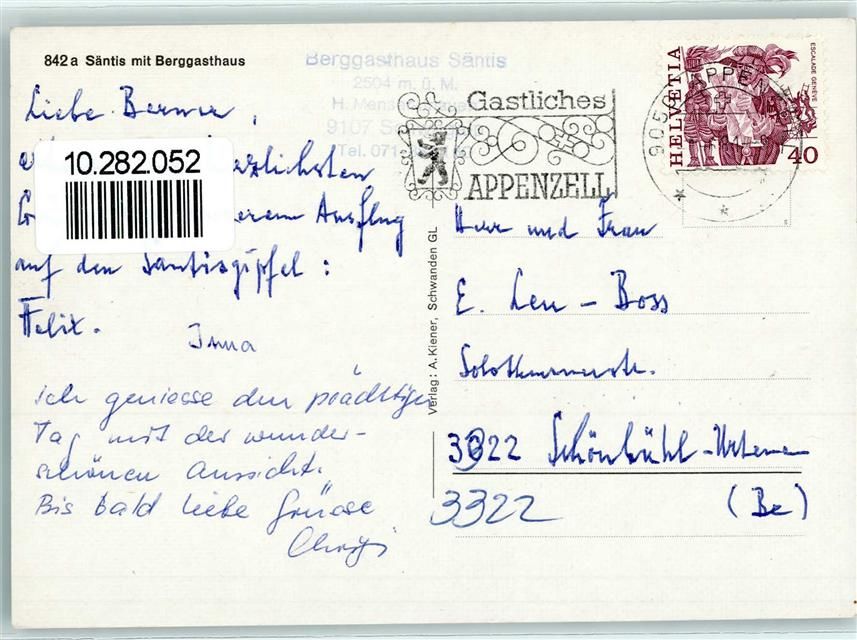 842a Säntis mit Berggasthaus
Berggasthaus Säntis
2504 m. ü. M.
9107
Tel. 071
Liebe Berner,
herzlichsten
unserem Ausflug
auf den Säntisgipfel:
Felix. Irma
Ich geniesse den prächtigen
Tag mit der wunder-
schönen Aussicht.
Bis bald liebe Grüsse
10.282.052
Verlag: A. Kiener, Schwanden GL
Gastliches
APPENZELL
9050 APPENZELL
HELVETIA
ESCALADE GENÈVE
40
Herr und Frau
E. Leu - Boss
Solothurnerstr.
3322 Schönbühl-Urtenen
3322 (Be)